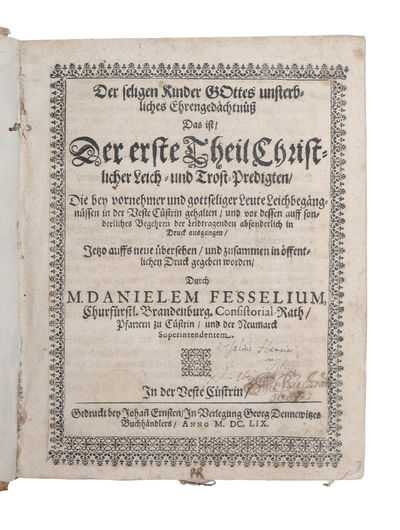 Der seligen Kinder GOttes unsterb-
liches Ehrengedächtnüß
Das ist/
Der erste Theil Christ-
licher Leich- und Trost-Predigten/
Die bey vornehmer und gottseliger Leute Leichbegäng-
nüssen in der Veste Cüstrin gehalten/ und vor dessen auff son-
derliches Begehren der Leidtragenden absonderlich in
Druck ausgangen/
Jetzo auffs neue übersehen/ und zusammen in öffent-
lichen Druck gegeben worden/
Durch
M. DANIELEM FESSELIUM,
Churfürstl. Brandenburg. Consistorial-Rath/
Pfarrern zu Cüstrin/ und der Neumarck
Superintendentem.
In der Veste Cüstrin/
Gedruckt bey Johañ Ernsten/ In Verlegung Georg Dennewitzes
Buchhändlers/ ANNO M. DC. LIX.